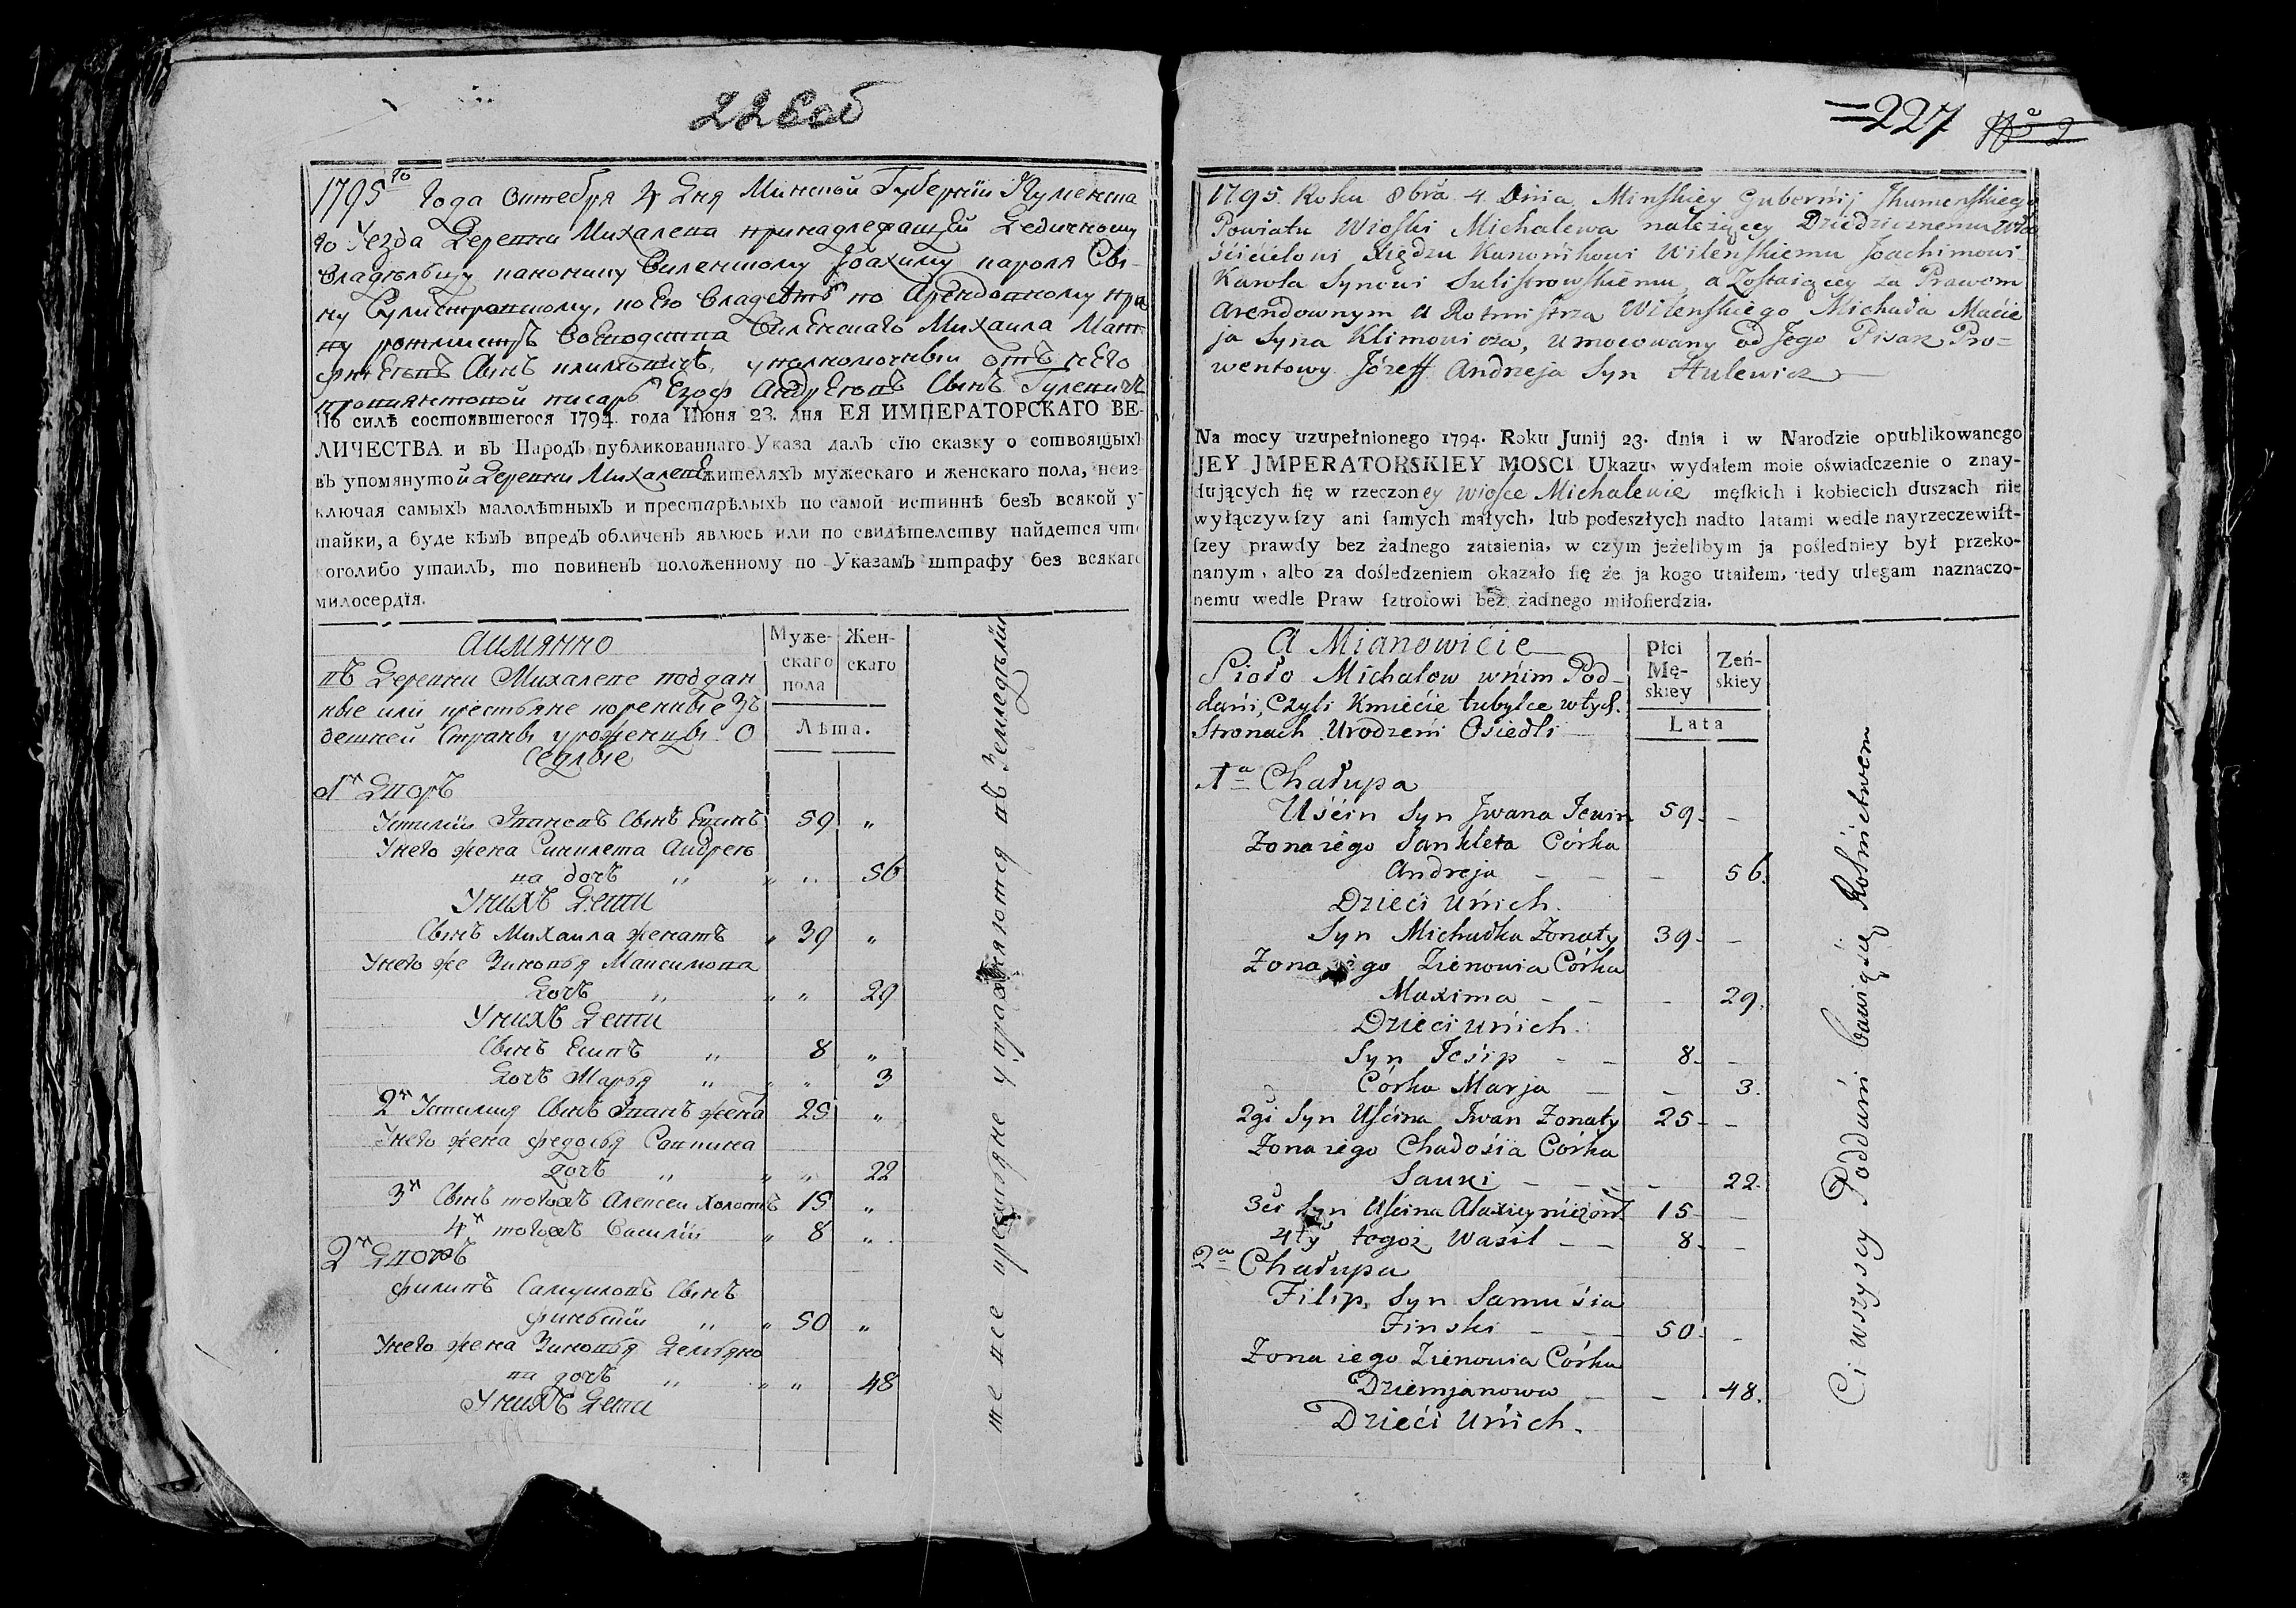 226об
1795го Года Октебря 4 Дня Минской Губернїи Игуменска
го Уезда Деревни Михалева принадлежащей Дедичному
Владельцу канонику Виленскому Іоахиму Кароля Сы-
ну Сулистровскому, по Его Владеть по Арендовному пра
ву ротмистръ Воеводства Виленскаго Михаила Мат-
фиевъ Сынъ климовичъ, уполномочный отъ него
провиянтовой писарь Езоф Андреевъ Сынъ Гулевичъ
По силѣ состоявшегося 1794. года Июня 23. дня ЕЯ ИМПЕРАТОРСКАГО ВЕ-
ЛИЧЕСТВА и въ Народъ публикованнаго Указа далъ сїю сказку о сотвоящыхъ
въ упомянутой Деревни Михалеве жителяхъ мужескаго и женскаго пола, неиз-
ключая самыхъ малолѣтныхъ и престарѣлыхъ по самой истиннѣ безъ всякой у-
тайки, а буде кѣмъ впредъ обличенъ явлюсь или по свидѣтелству найдется что
коголибо утаилъ, то повиненъ положенному по Указамъ штрафу без всякаго
милосердїя.
аимянно
въ Деревни Михалеве поддан
ные или крестьяне коренные Зъ
дешней Страны уроженцы О
седлые
Муже-
скаго
пола
Жен-
скаго
Лѣта.
1й Дворъ
Устилїй Ивановъ Сынъ Евинъ 59 „
Унего жена Синклета Андрее
ва дочь „ „ „ 56
Унихъ Дети
Сынъ Михаила женатъ „ 39 „
Унего же Зиновья Максимова
Дочь „ „ „ 29
Унихъ Дети
Сынъ Есипъ „ 8 „
Дочь Марья „ „ „ 3
2й Устилия Сынъ Иванъ жена 25 „
Унего жена федосья Саввина
дочь „ „ „ 22
3й Сынъ тогожъ Алексеи Холостъ 15 „
4й тогожъ Василїй „ 8 „
2й Дворъ
филипъ Самуиловъ Сынъ
финьский „ „ 50 „
Унего жена Зиновья Демьяно
ва дочь „ „ „ 48
Унихъ Дети
те все крестьяне упражняютея въ Земледѣлїи
=227 № 2
1795. Roku 8bra 4. Dnia Minskiey Gubernij Jhumenskiego
Powiatu Wioski Michalewa należącey Dziedzicznemu Wła
ścićielowi Xiędzu Kanonikowi Wileńskiemu Joachimowi
Karola Synowi Sulistrowskiemu, a Zostaiącey za Prawem
Arendownym u Rotmistrza Wileńskiego Michała Macie
ja Syna Klimowicza, umocowany od Jego Pisarz Pro=
wentowy Józeff Andrzeja Syn Hulewicz
Na mocy uzupełnionego 1794. Roku Junij 23. dnia i w Narodzie opublikowanego
JEY JMPERATORSKIEY MOSCI Ukazu, wydałem moie oświadczenie o znay-
dujących się w rzeczoney wiosce Michalewie męſkich i kobiecich duszach nie
wyłączywſzy ani ſamych małych, lub podeszłych nadto latami wedle nayrzeczewiſt-
ſzey prawdy bez żadnego zataienia, w czym jeżelibym ja pośledniey był przeko-
nanym, albo za dośledzeniem okazało ſię że ja kogo utaiłem, tedy ulegam naznaczo-
nemu wedle Praw ſztrofowi bez żadnego miłoſierdzia.
A Mianowićie
Sioło Michalow wnim Pod-
dani, Czyli Kmiećie tubylce wtych
Stronach Urodzeni Osiedli
Płci
Mę-
skiey
Zeń-
skiey
Lata
1a Chałupa
Uśćin Syn Jwana Jewin 59. -
Zona iego Sankleta Córka
Andreja - - - 56.
Dzieći unich.
Syn Michałka Zonaty 39. -
Zona iego Zienowia Córka
Maxima - - - 29.
Dzieci unich.
Syn Jesip - - 8. -
Córka Marja - - 3.
2gi Syn Uścina Jwan Zonaty 25 - -
Zona iego Chadosia Córka
Sawki - - - 22.
3ci Syn Uścina Alaxiey nieżon. 15 - -
4ty togoż Wasil - - 8. -
2a Chałupa
Filip, Syn Samuśia
Finski - - 50. -
Zona iego Zienowia Córka
Dziemjanowa - - 48.
Dzieći unich.
Ci wszyscy Poddani bawią się Rolnictwem